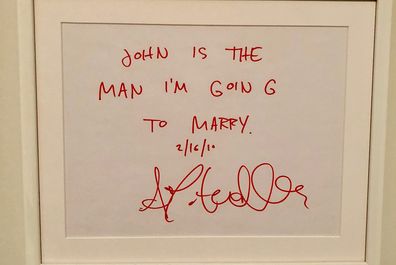 JOHN IS THE
MAN I'M GOING
TO MARRY.
2/16/10